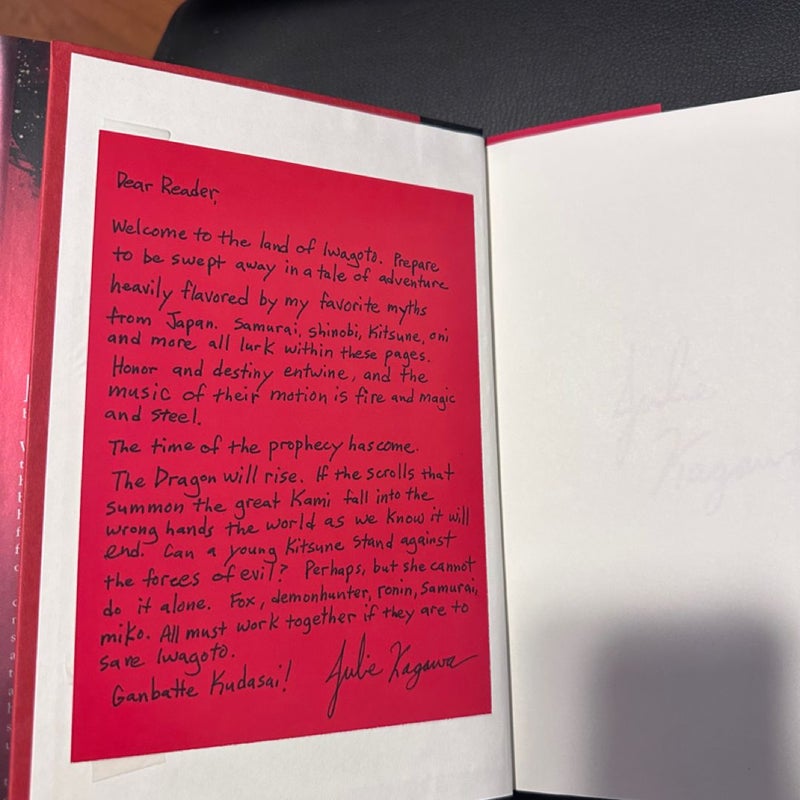 Dear Reader,
Welcome to the land of Iwagoto. Prepare
to be swept away in a tale of adventure
heavily flavored by my favorite myths
from Japan. Samurai, shinobi, Kitsune, oni
and more all lurk within these pages.
Honor and destiny entwine, and the
music of their motion is fire and magic
and steel.
The time of the prophecy has come.
The Dragon will rise. If the scrolls that
summon the great Kami fall into the
wrong hands the world as we know it will
end. Can a young Kitsune stand against
the forces of evil? Perhaps, but she cannot
do it alone. Fox, demonhunter, ronin, Samurai,
miko. All must work together if they are to
save Iwagoto.
Ganbatte Kudasai! Julie Kagawa
Julie
Kagawa